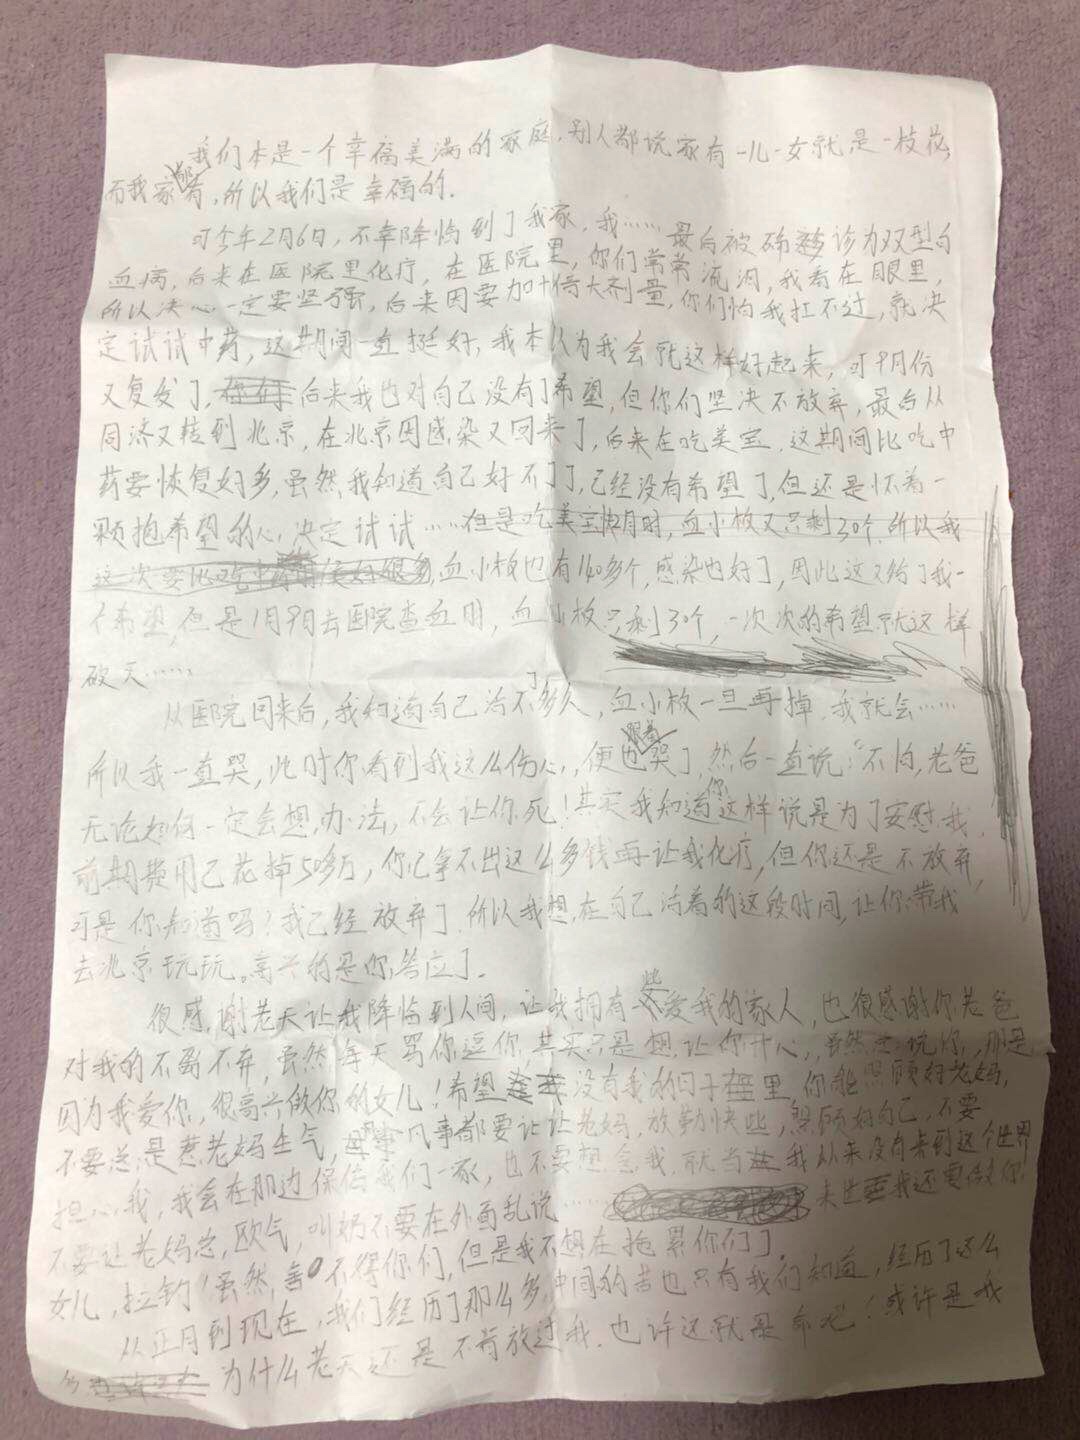 我们本是一个幸福美满的家庭，别人都说家有一儿一女就是一枝花，
而我家都有，所以我们是幸福的.
可今年2月6日，不幸降临到了我家，我……最后被确诊为双型白
血病，后来在医院里化疗，在医院里，你们常常流泪，我看在眼里，
所以决心一定要坚强，后来因要加大剂量，你们怕我扛不过，就决
定试试中药，这期间一直挺好，我本认为我会就这样好起来，可9月份
又复发了，后来我也对自己没有了希望，但你们坚决不放弃，最后从
同济又转到北京，在北京因感染又回来了，后来在吃美宝，这期间比吃中
药要恢复好多，虽然我知道自己好不了了，已经没有希望了，但还是怀着一
颗抱希望的心，决定试试……但是吃美宝2月时，血小板又只剩30个，所以我
血小板也有140多个，感染也好了，因此这又给了我一
个希望，但是1月9日去医院查血时，血小板只剩30个，一次次的希望就这样
破灭……
从医院回来后，我知道自己活不了多久，血小板一旦再掉，我就会……
所以我一直哭，此时你看到我这么伤心，便也跟着哭了，然后一直说：“不怕，老爸
无论如何一定会想办法，不会让你死！其实我知道你这样说是为了安慰我，
前期费用已花掉50多万，你已拿不出这么多钱再让我化疗，但你还是不放弃，
可是你知道吗？我已经放弃了，所以我想在自己活着的这段时间，让你带我
去北京玩玩。高兴的是你答应了.
很感谢老天让我降临到人间，让我拥有一些爱我的家人，也很感谢你老爸
对我的不离不弃，虽然每天骂你逗你，其实只是想让你开心，虽然总说你，那是
因为我爱你，很高兴做你的女儿！希望没有我的日子里，你能照顾好老妈，
不要总是惹老妈生气，凡事都要让让老妈，放勤快些，照顾好自己，不要
担心我，我会在那边保佑我们一家，也不要想念我，就当我从来没有来到这个世界
不要让老妈总怄气，叫奶不要在外面乱说……来世我还要做你
女儿，拉钩！虽然舍不得你们，但是我不想在拖累你们了.
从正月到现在，我们经历了那么多，中间的苦也只有我们知道，经历了这么
多 为什么老天还是不肯放过我，也许这就是命吧！或许是我